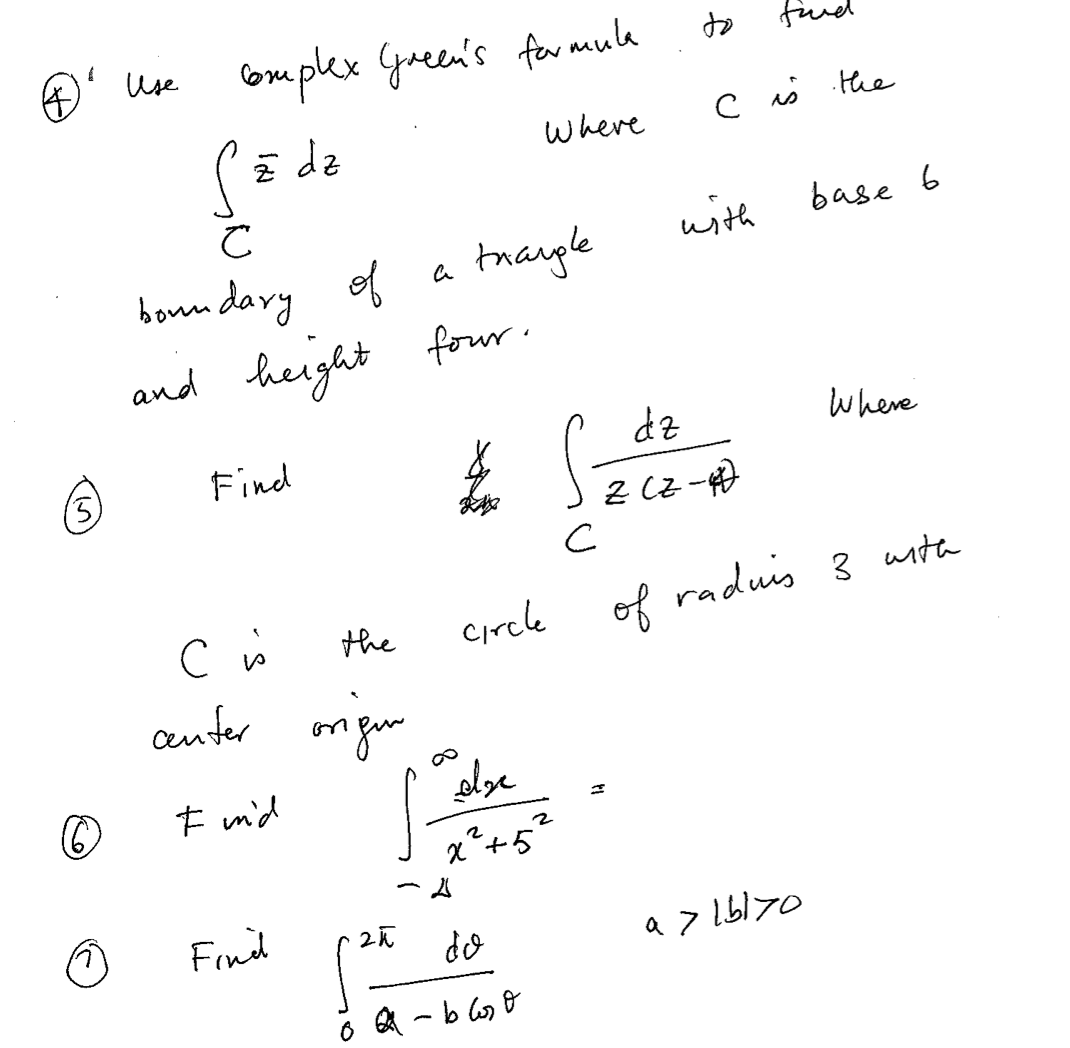 ④ Use complex Green's formula to find
∫_C z̄ dz where C is the
boundary of a triangle with base 6
and height four.
⑤ Find ∫_C dz / z(z-4) where
C is the circle of radius 3 with
center origin
⑥ Find ∫_{-∞}^{∞} dx / x²+5² =
⑦ Find ∫_0^{2π} dθ / a - b cos θ a > |b| > 0